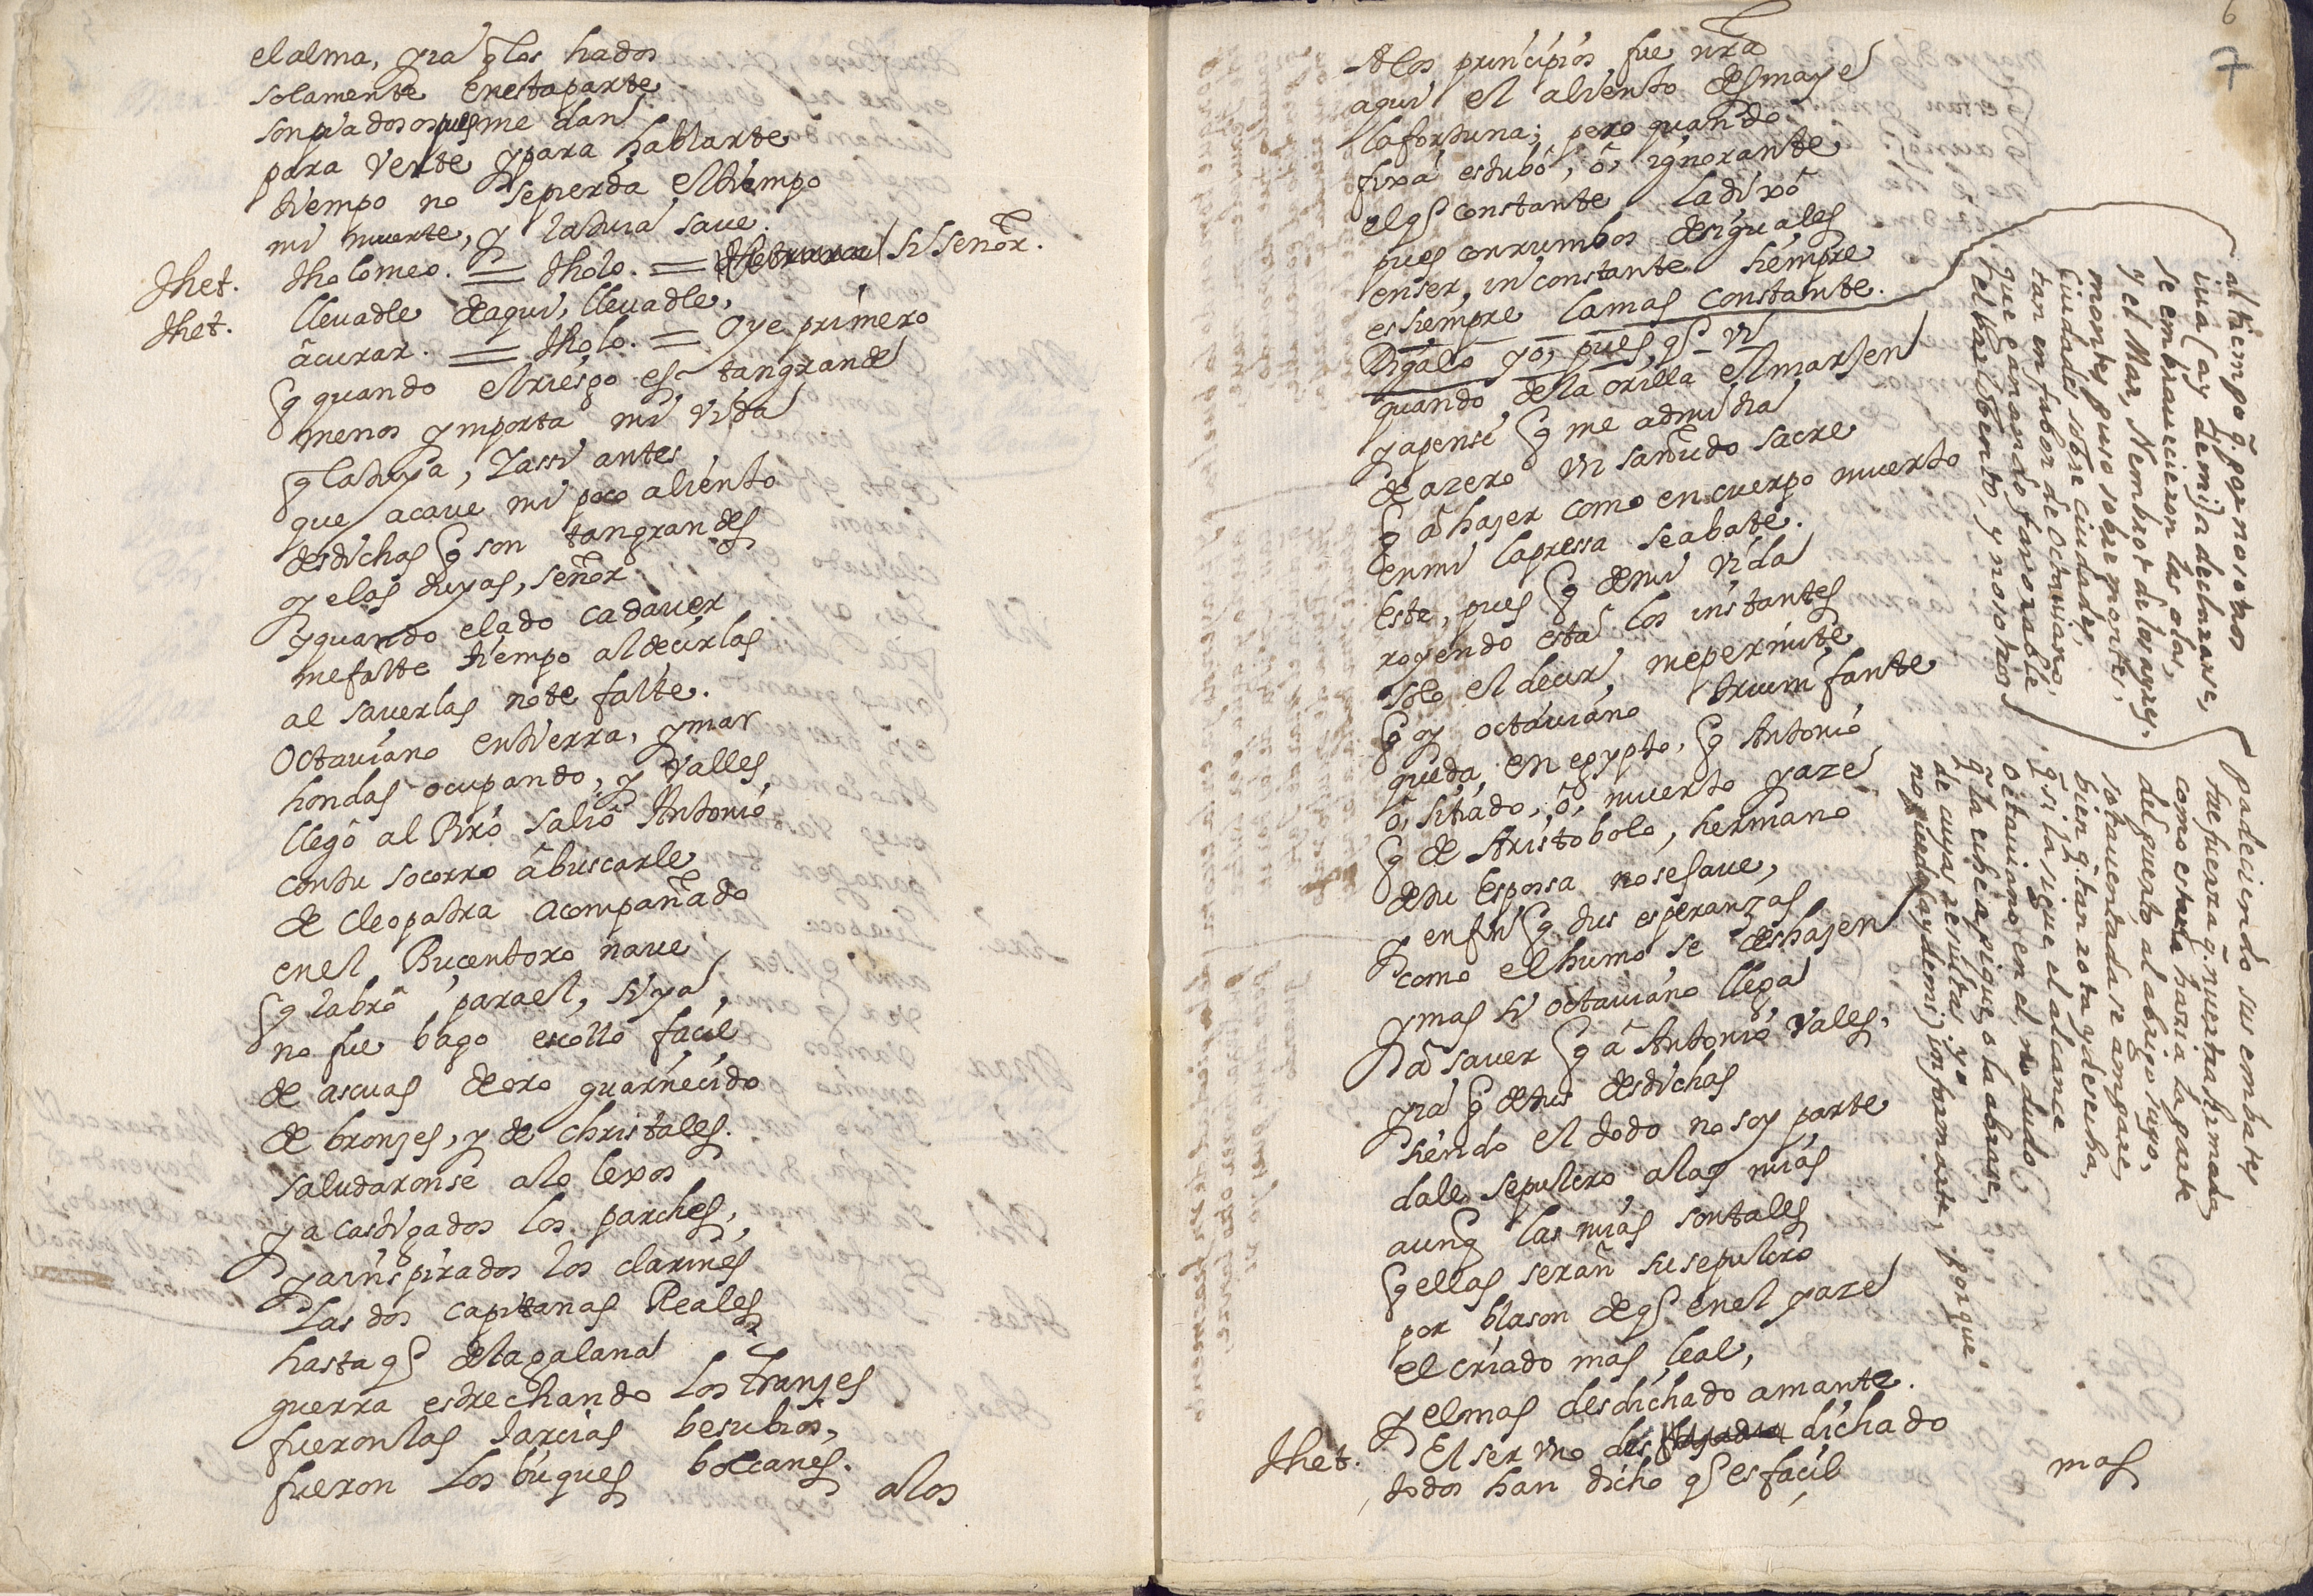 el alma, y ia q̃ los hados
solamente en esta parte
son piadosos pues me dan
para verte y para hablarte
tiempo no se pierda el tiempo
mi muerte, y la tuia saue.
thet. tholomeo. = tholo. = si señor.
thet. lleuadle de aqui, lleuadle,
â curar. = tholo. = Oye primero
q̃ quando el riesgo es tan grande
menos ymporta mi vida
q̃ la tuya, y assi antes
que acaue mi poco aliento
desdichas q̃ son tan grandes
oyelas tuyas, señor
y quando elado cadauer
me falte tiempo al decirlas
al sauerlas no te falte.
Octauiano en tierra, y mar
hondas ocupando, y valles
llegô al Piro salio Antonio
con tu socorro â buscarle
de Cleopatra acompañado
en el Bucentoro naue
q̃ labrô para el, si ya
no fue bago escollo facil
de ascuas de oro guarnecido
de bronzes, y de christales.
saludaronse a lo lexos
ya castigados los parches,
ya inspirados los clarines
las dos capitanas Reales
hasta q̃ de la galana
guerra estrechando los tranzes
fueron las jarcias besubios,
fueron los buques bolcanes.
a los
6
7
A los principios fue nrã
aqui el aliento desmaye
la fortuna; pero quando
fixa estubo, ô, ignorante
el q̃ constante la dixô
pues con rumbos desiguales
en ser inconstante siempre
es siempre la mas constante.
Digalo yo, pues, q̃ vi
quando de la orilla el marjen
ya pensé q̃ me admitia
de azero vn sañudo sacre
q̃ â hazer como en cuerpo muerto
en mi la pressa se abate.
Este, pues q̃ de mi vida
royendo esta los instantes
solo el decir me permite
q̃ oy octauiano triumfante
queda en egypto, q̃ Antonio
ô, sitiado, ô, muerto yaze
q̃ de Aristobolo, hermano
de tu esposa no se saue,
y en fin q̃ tus esperanzas
como el humo se deshazen
y mas si octauiano llega
â sauer q̃ â Antonio vales,
y ia q̃ de tus desdichas
siendo el todo no soy parte
dales sepulcro a las mias
aunq̃ las mias son tales
q̃ ellas serañ su sepulcro
por blason de q̃ en el yaze
el criado mas leal,
y el mas desdichado amante.
thet. El ser vno des dichado
todos han dicho q̃ es facil
mas
al tiempo q̃. por nosotros
iua (ay de mi) a declararse,
se embrauecieron las olas,
y el Mar, Nembrot de los ayres,
montes puso sobre montes,
Ciudades sobre ciudades,
tan en fabor de Octauiano,
que ganando faborable
el barlobento, y nosotros
padeciendo sus embates
fue fuerza q̃. nuestra Armada
como estaba hazia la parte
del puerto, al abrigo suyo,
sotauentada se ampare,
bien q̃. tan rota y desecha,
q̃. si la sigue el alcance
Octauiano en el, no dudo
q̃ la eche a pique, o la abrase,
de cuyas resultas yo
no puedo (ay de mi) informarte, porque